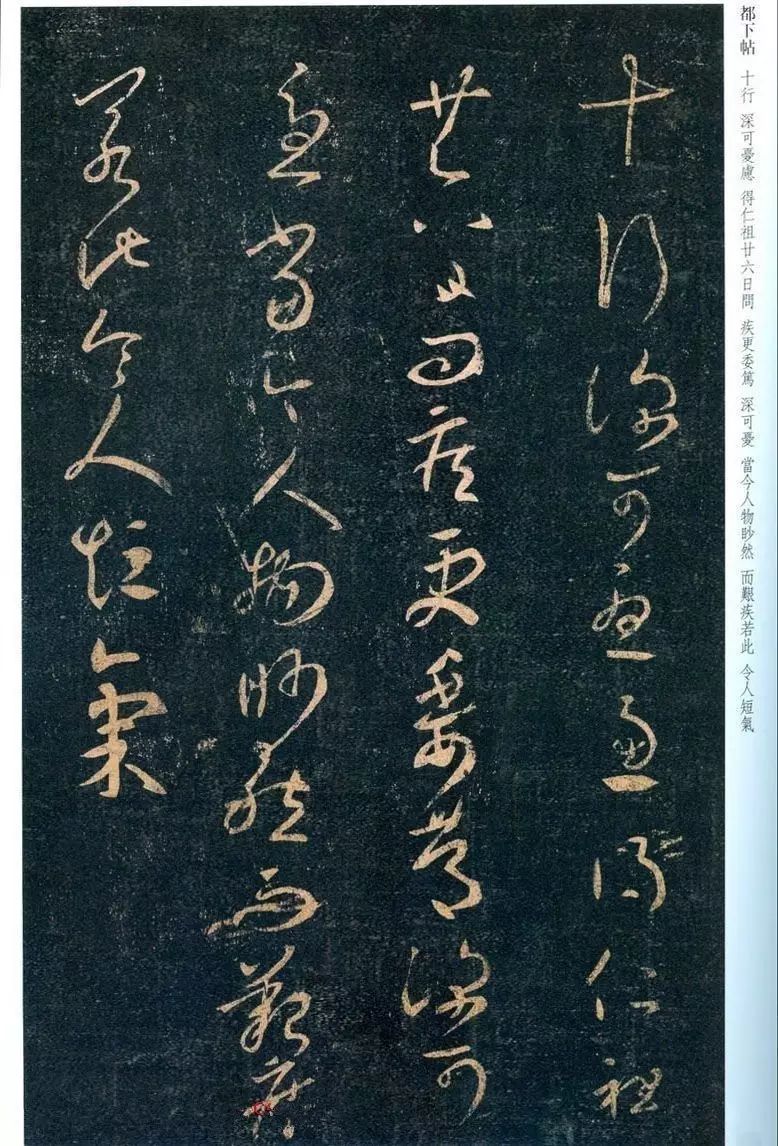 都下帖 十行 深可憂慮 得仁祖廿六日問 疾更委篤 深可憂 當今人物眇然 而艱疾若此 令人短氣
十行深可憂慮得仁祖
廿六日問疾更委篤深可
憂當今人物眇然而艱疾
若此令人短氣